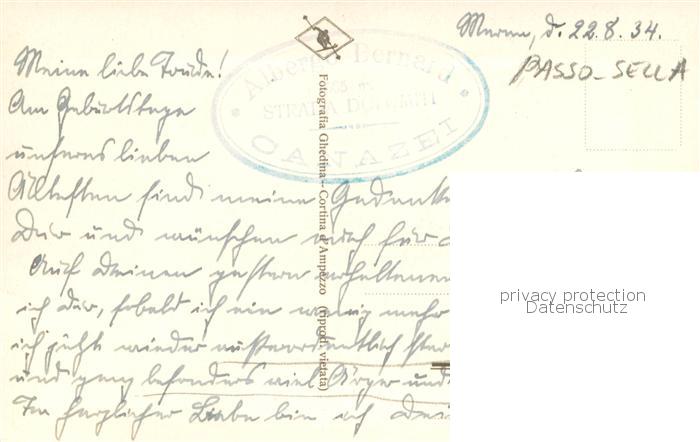 Meran, d. 22.8.34.
PASSO-SELLA
Albergo Bernard
STRADA DOLOMITI
CANAZEI
Fotografia Ghedina - Cortina d'Ampezzo (riprod. vietata)
Meine liebe Trude!
Am Geburtstage
unseres lieben
Ältesten sind meine Gedanken
Dir und wünschen auch für
Auf Deinen gestern erhaltenen
ich Dir, sobald ich ein wenig mehr
ich jetzt wieder außerordentlich
und ganz besonders viel Ärger und
In herzlicher Liebe bin ich
privacy protection
Datenschutz